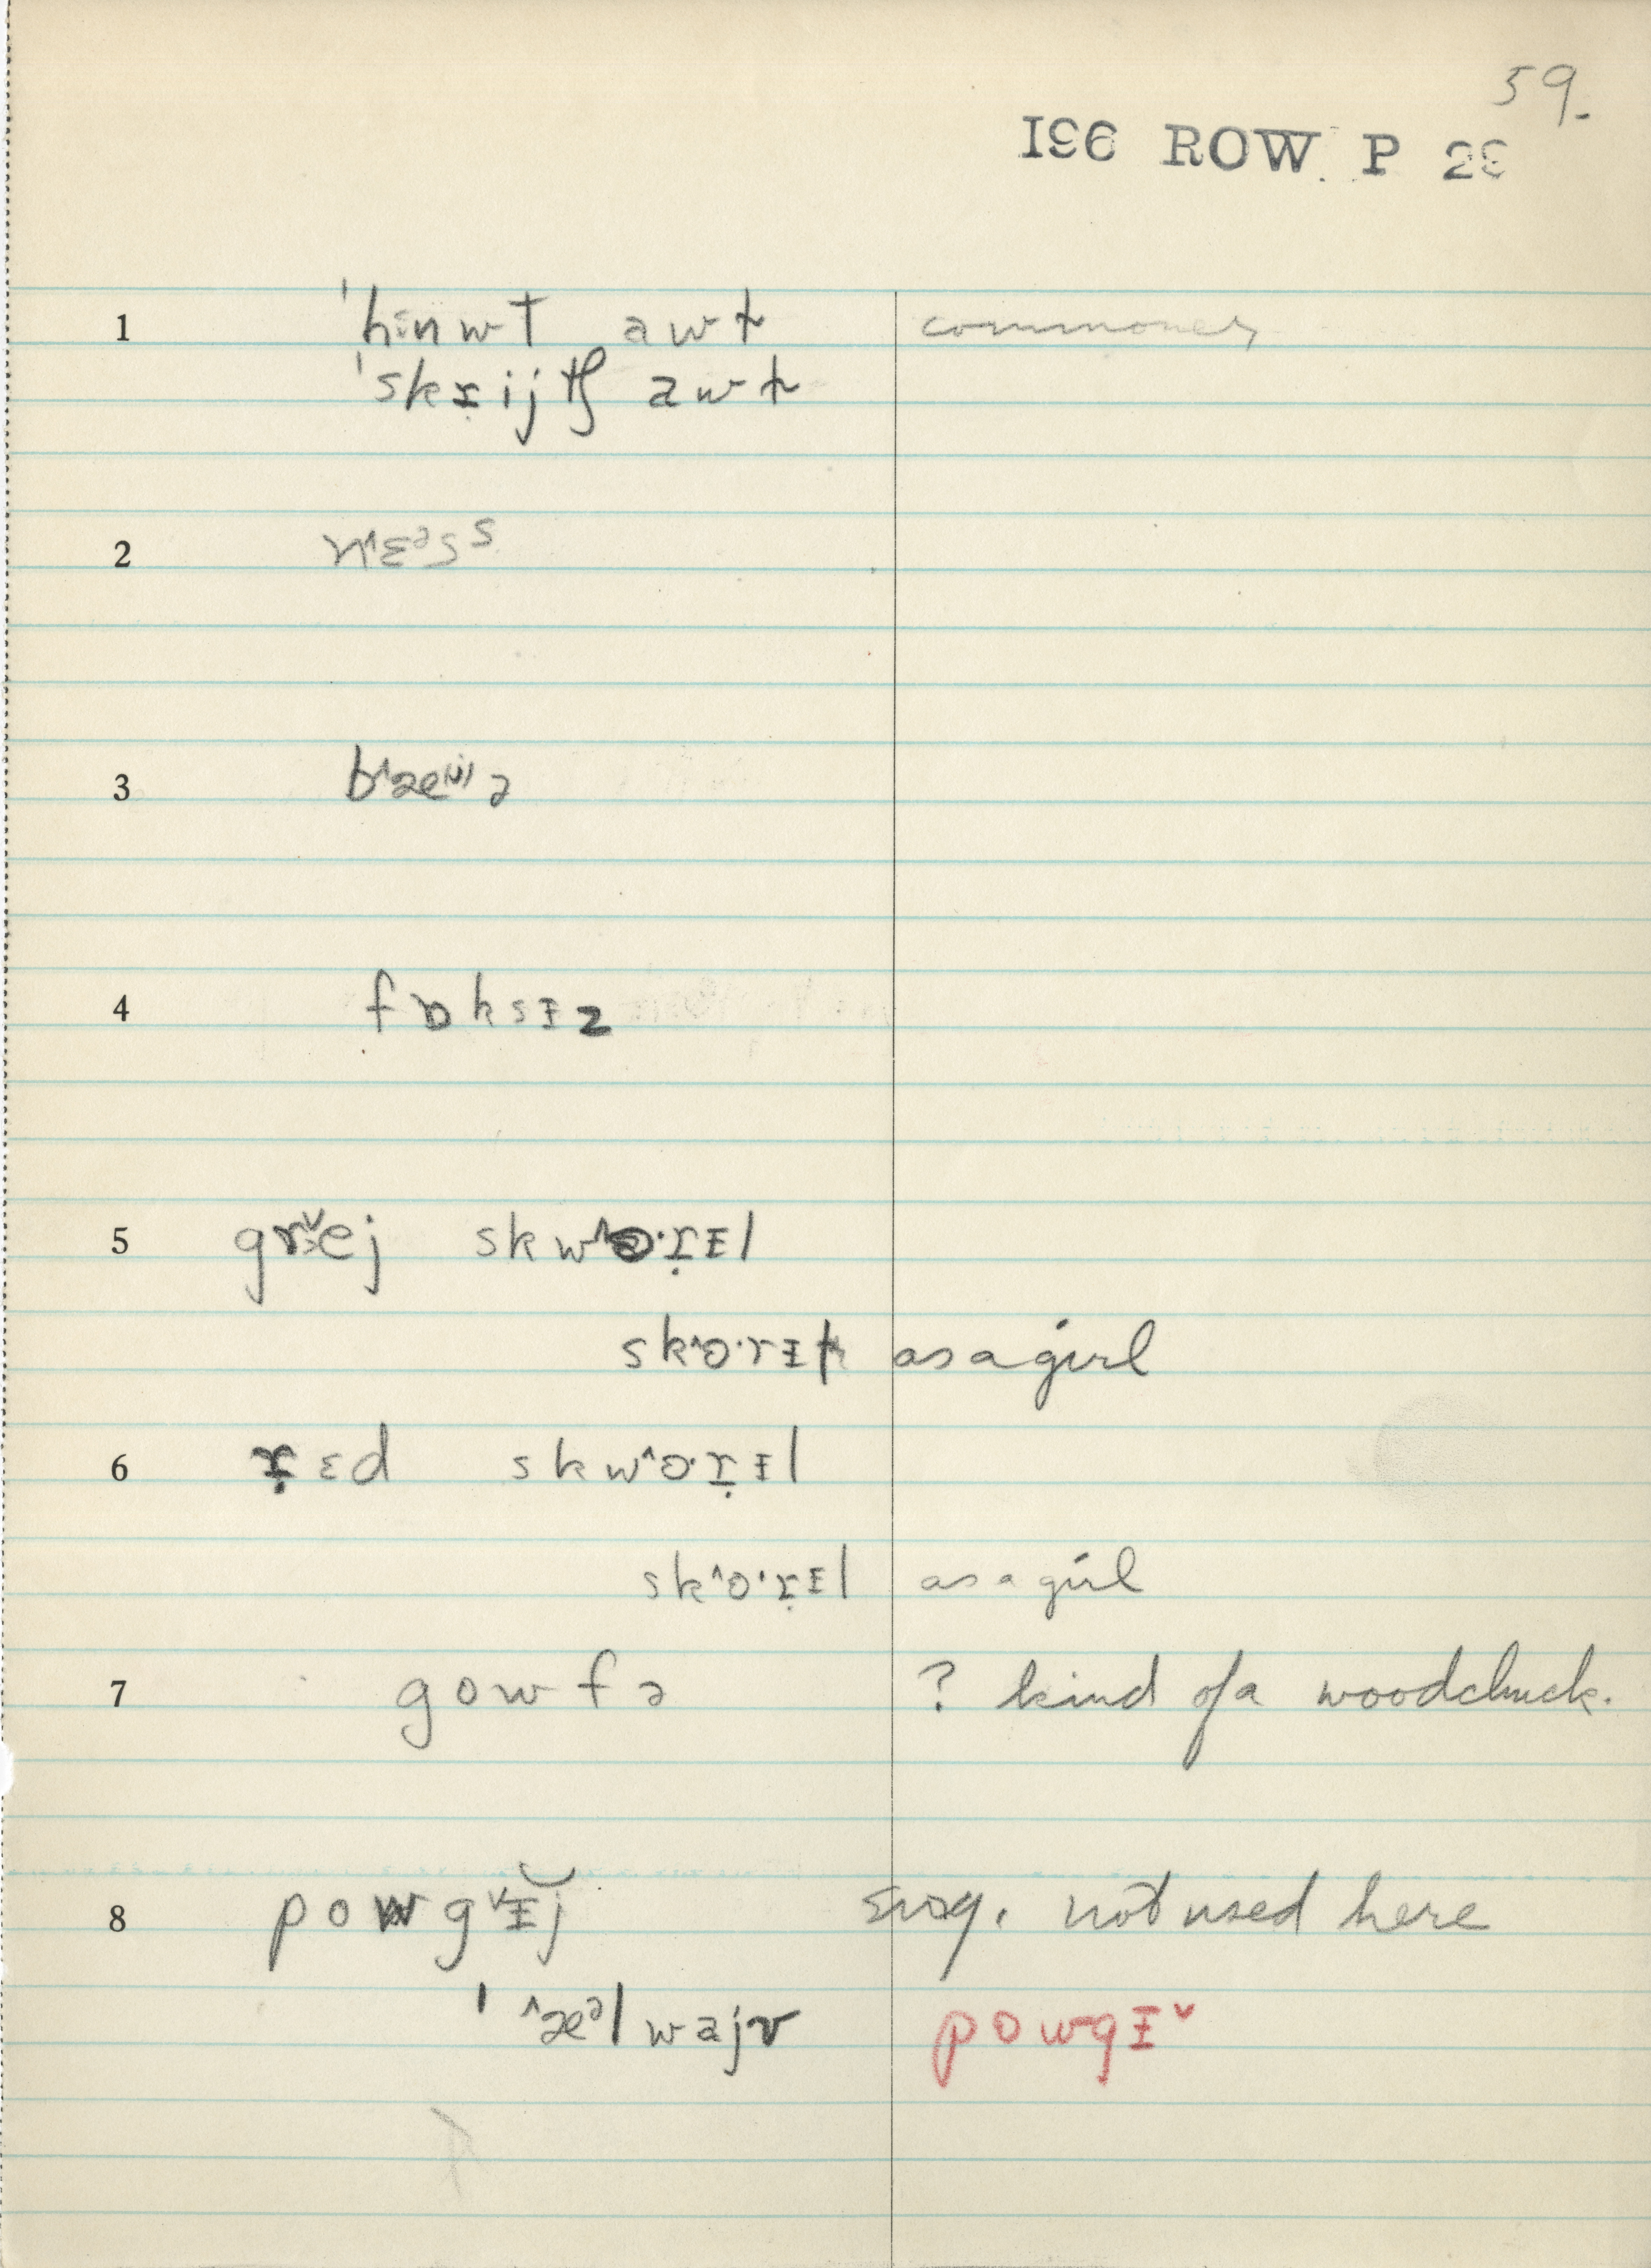 59.
196 ROW P 29
1 ˈhɪnwt awt commoner
ˈskṛijtʃ awt
2 nˈ^ɛᵊsˢ
3 b^æe⁽ʲ⁾ə
4 fɒksɪz
5 grˇej skw^ɒ·ṛɪl
sk^ɒ·rɪl as a girl
6 ṛɛd skw^ɒ·ṛɪl
sk^ɒ·ṛɪl as a girl
7 gowfə ? kind of a woodchuck.
8 powgˇɪj sug. not used here
ˈ^æᵊlwajv powgɪˇ